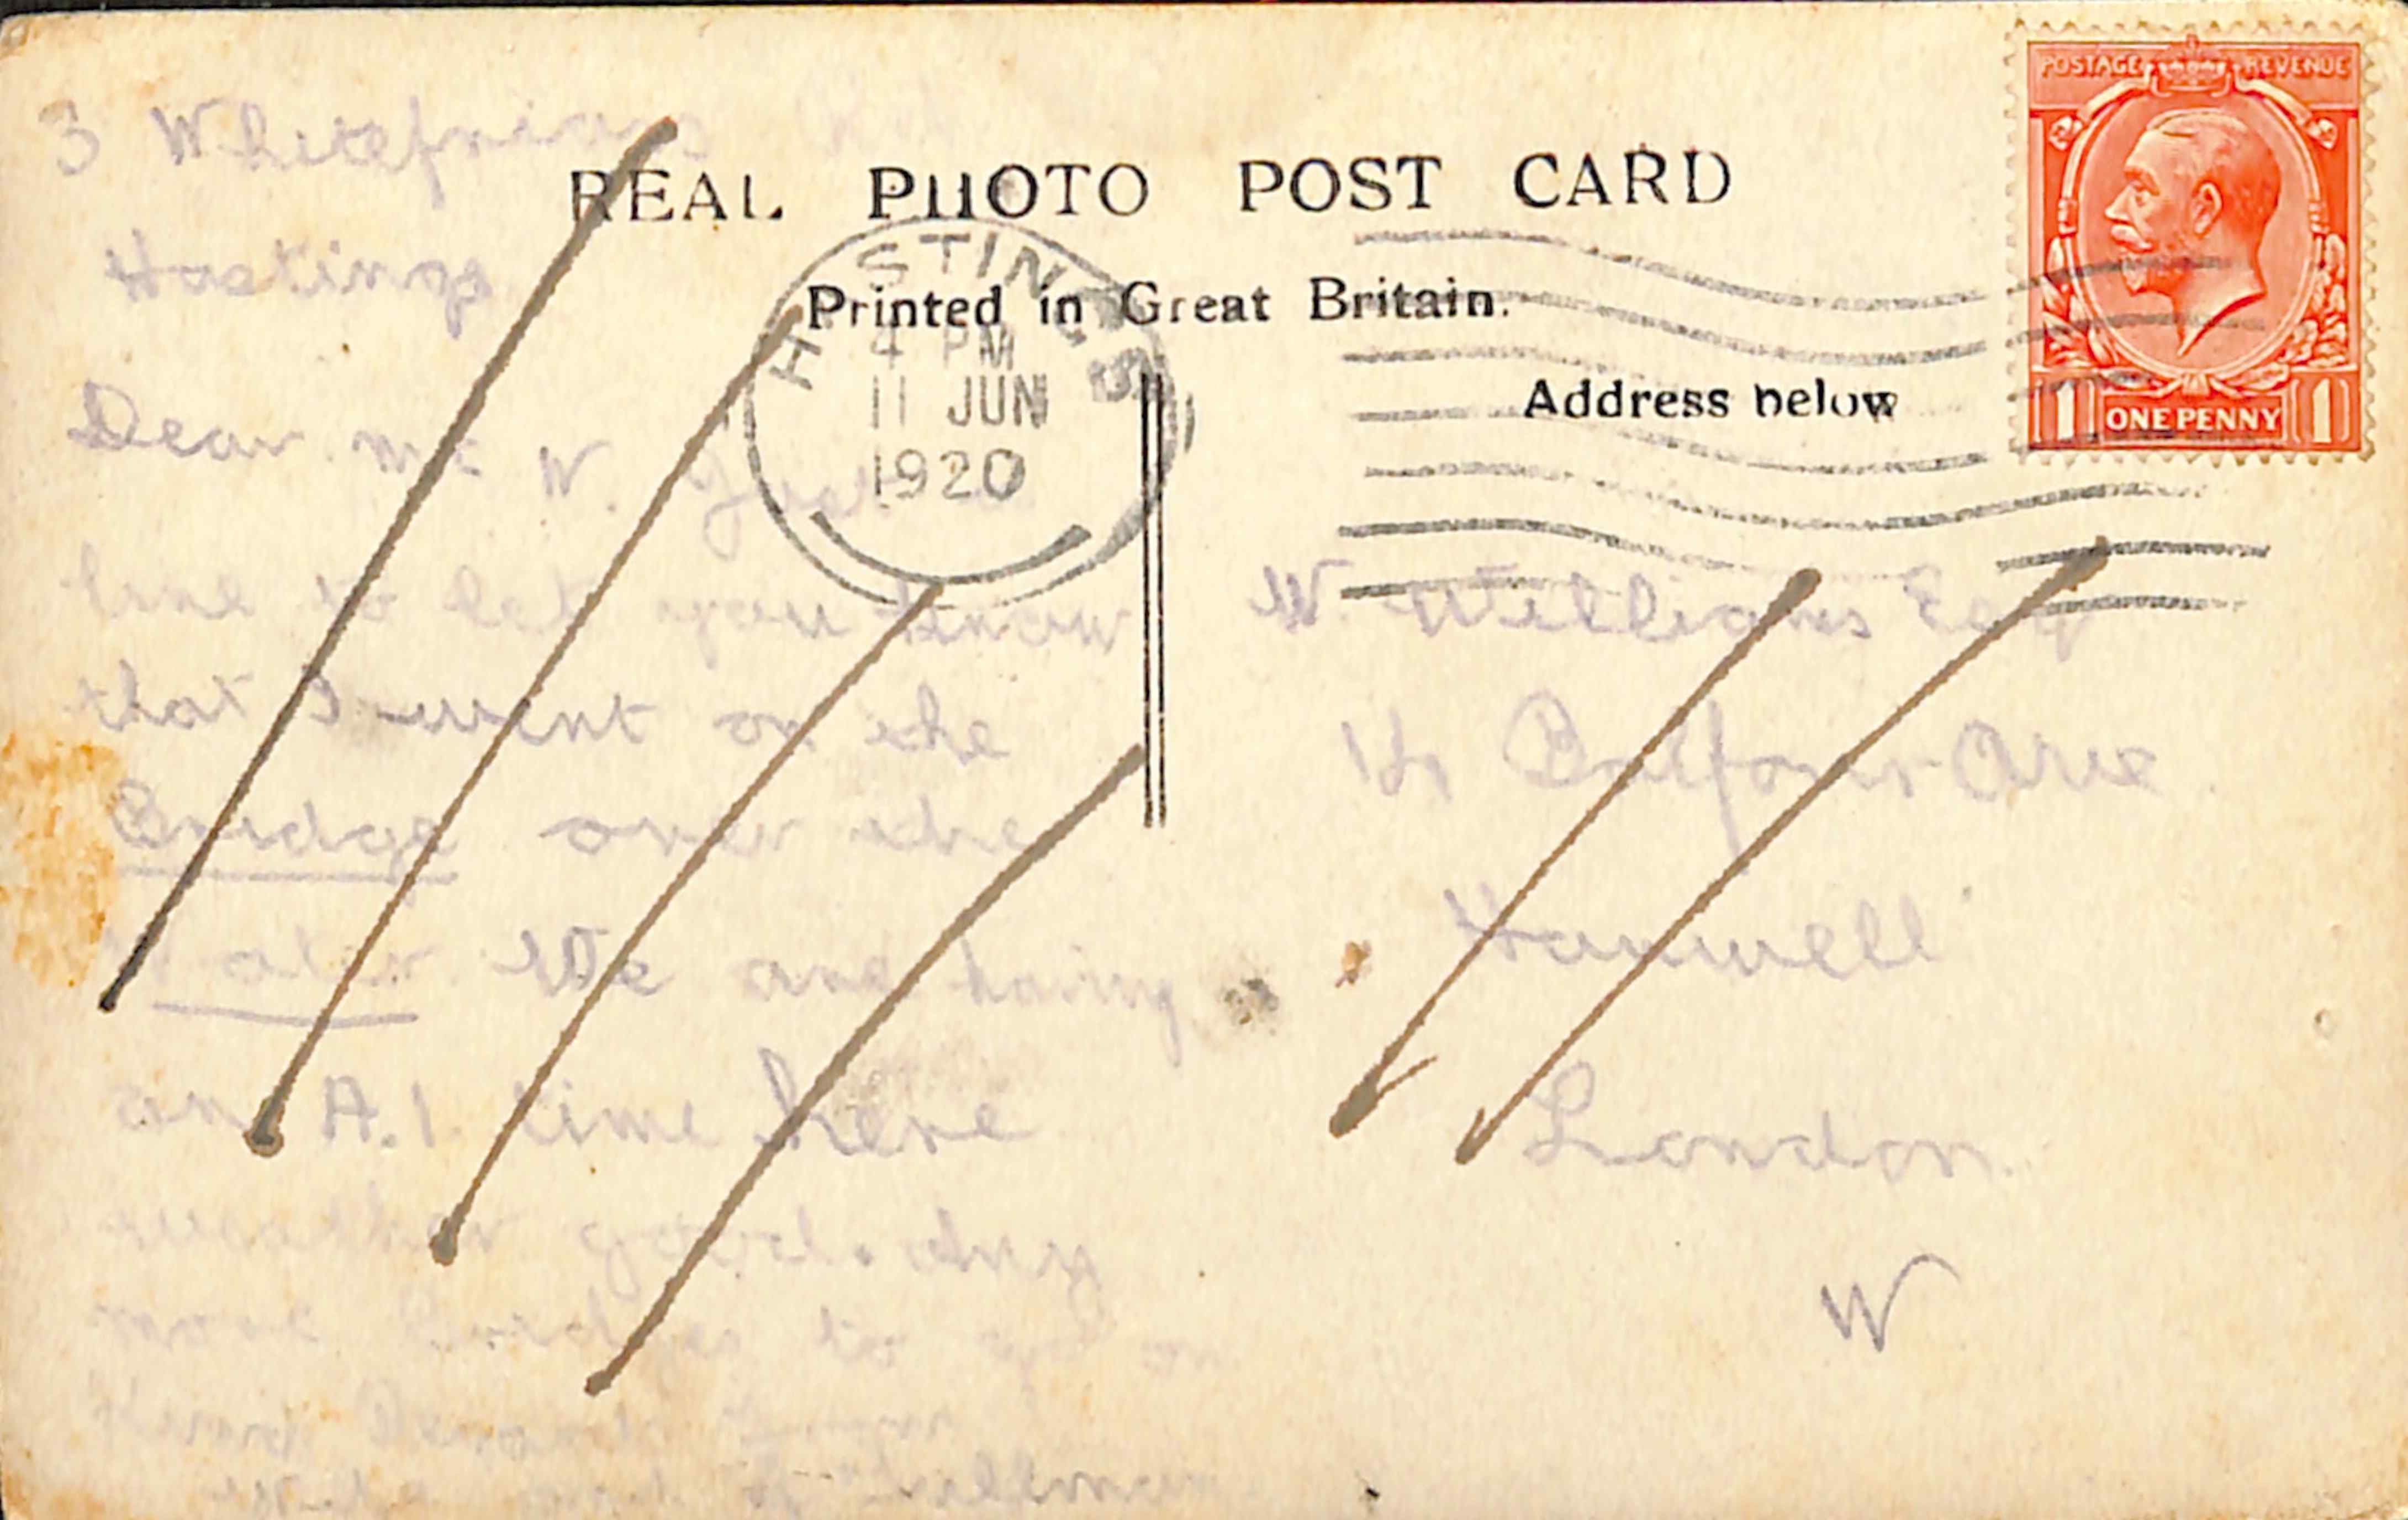 REAL PHOTO POST CARD
Printed in Great Britain.
Address below
POSTAGE REVENUE
1 ONE PENNY 1
HASTINGS
4 PM
11 JUN
1920
3 Whitefriars
Hastings
Dear Mr W. Just
line to let you know
that I went on the
Bridge over the
Water We are having
an A.1. time here
weather good. any
more Bridges to go on
W. Williams Esq
Balfour Ave
Hanwell
London
W